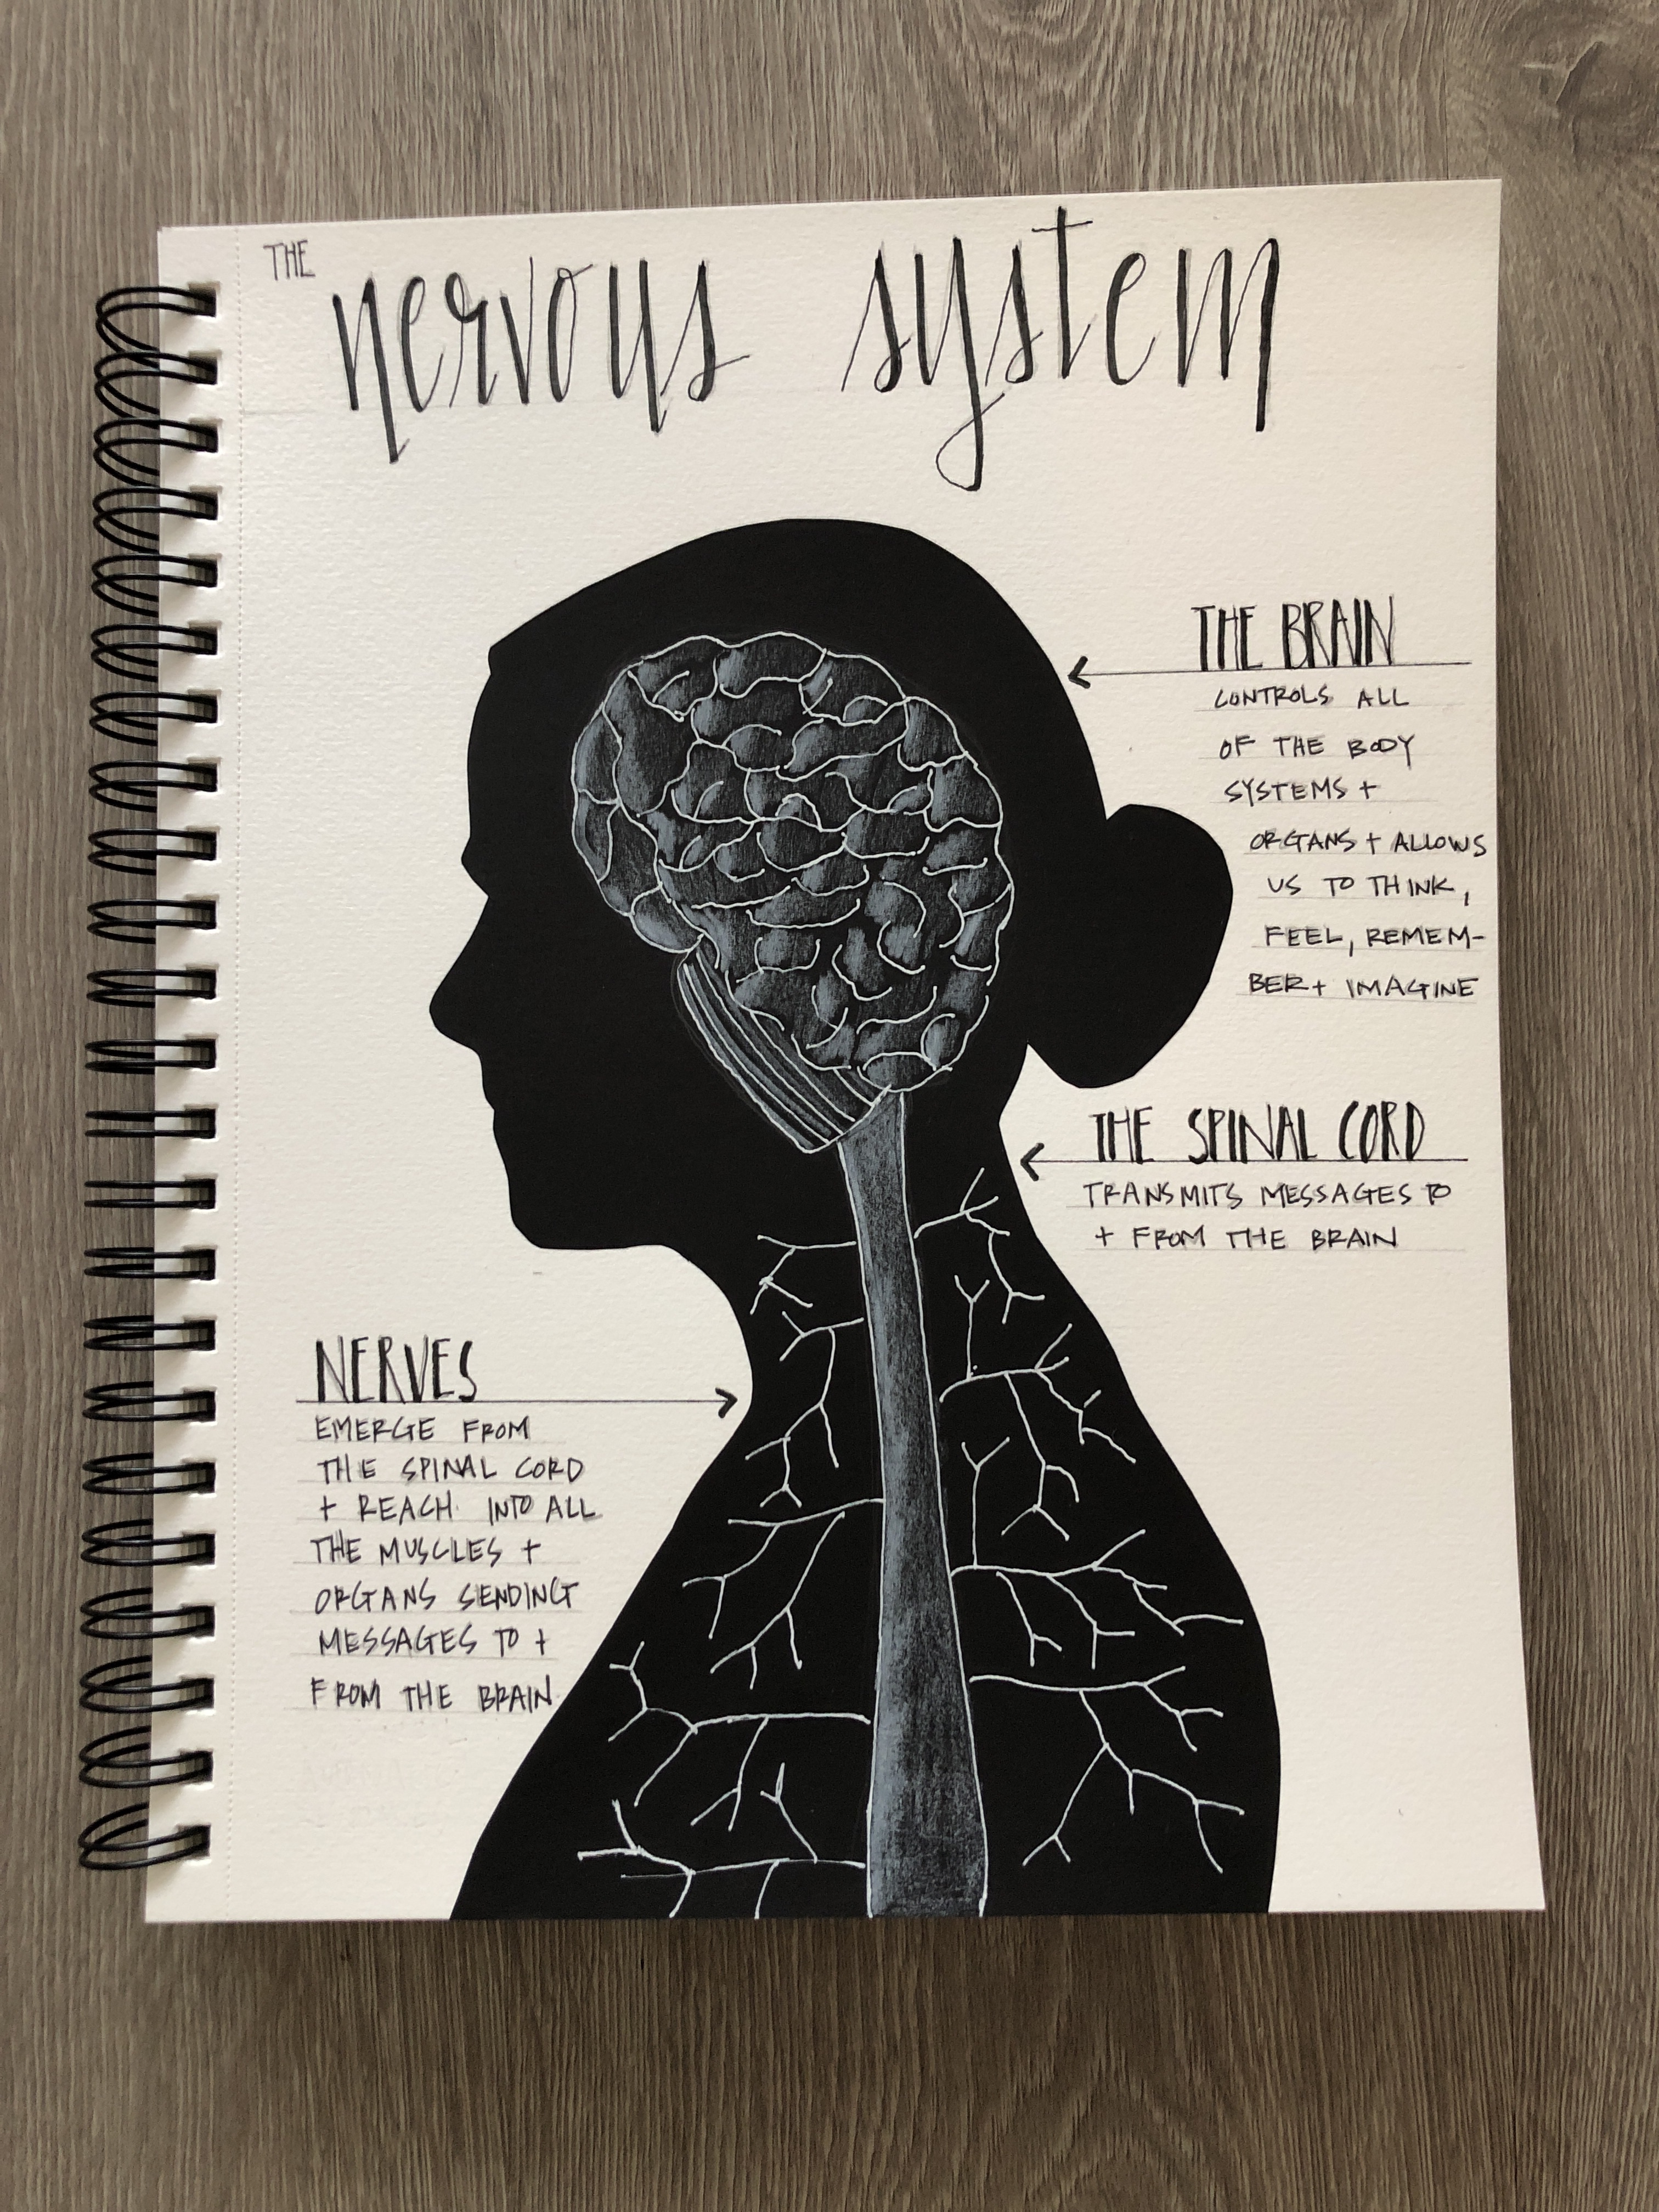 THE
nervous system
THE BRAIN
CONTROLS ALL
OF THE BODY
SYSTEMS +
ORGANS + ALLOWS
US TO THINK,
FEEL, REMEM-
BER + IMAGINE
THE SPINAL CORD
TRANSMITS MESSAGES TO
+ FROM THE BRAIN
NERVES
EMERGE FROM
THE SPINAL CORD
+ REACH INTO ALL
THE MUSCLES +
ORGANS SENDING
MESSAGES TO +
FROM THE BRAIN